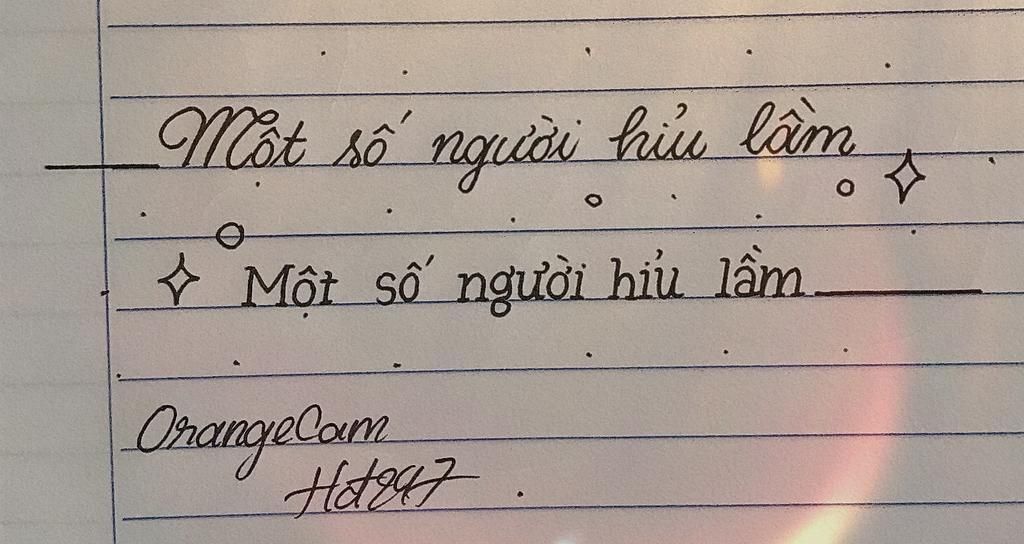 Một số người hiủ lầm
Một số người hiủ lầm
OrangeCam